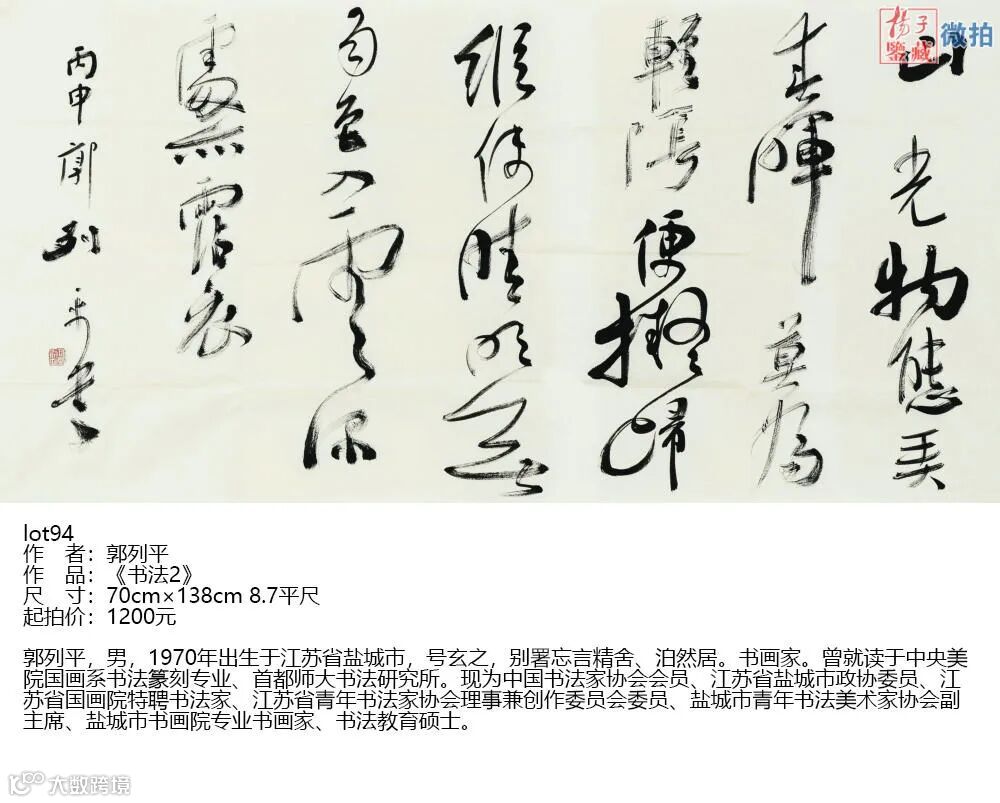 山光物態弄
春暉莫為
輕陰便擬歸
縱使晴明無
雨色入雲深
處亦霑衣
丙申郭列平書
楊子鑒藏
微拍
lot94
作 者：郭列平
作 品：《书法2》
尺 寸：70cm×138cm 8.7平尺
起拍价：1200元
郭列平，男，1970年出生于江苏省盐城市，号玄之，别署忘言精舍、泊然居。书画家。曾就读于中央美
院国画系书法篆刻专业、首都师大书法研究所。现为中国书法家协会会员、江苏省盐城市政协委员、江
苏省国画院特聘书法家、江苏省青年书法家协会理事兼创作委员会委员、盐城市青年书法美术家协会副
主席、盐城市书画院专业书画家、书法教育硕士。
大数跨境